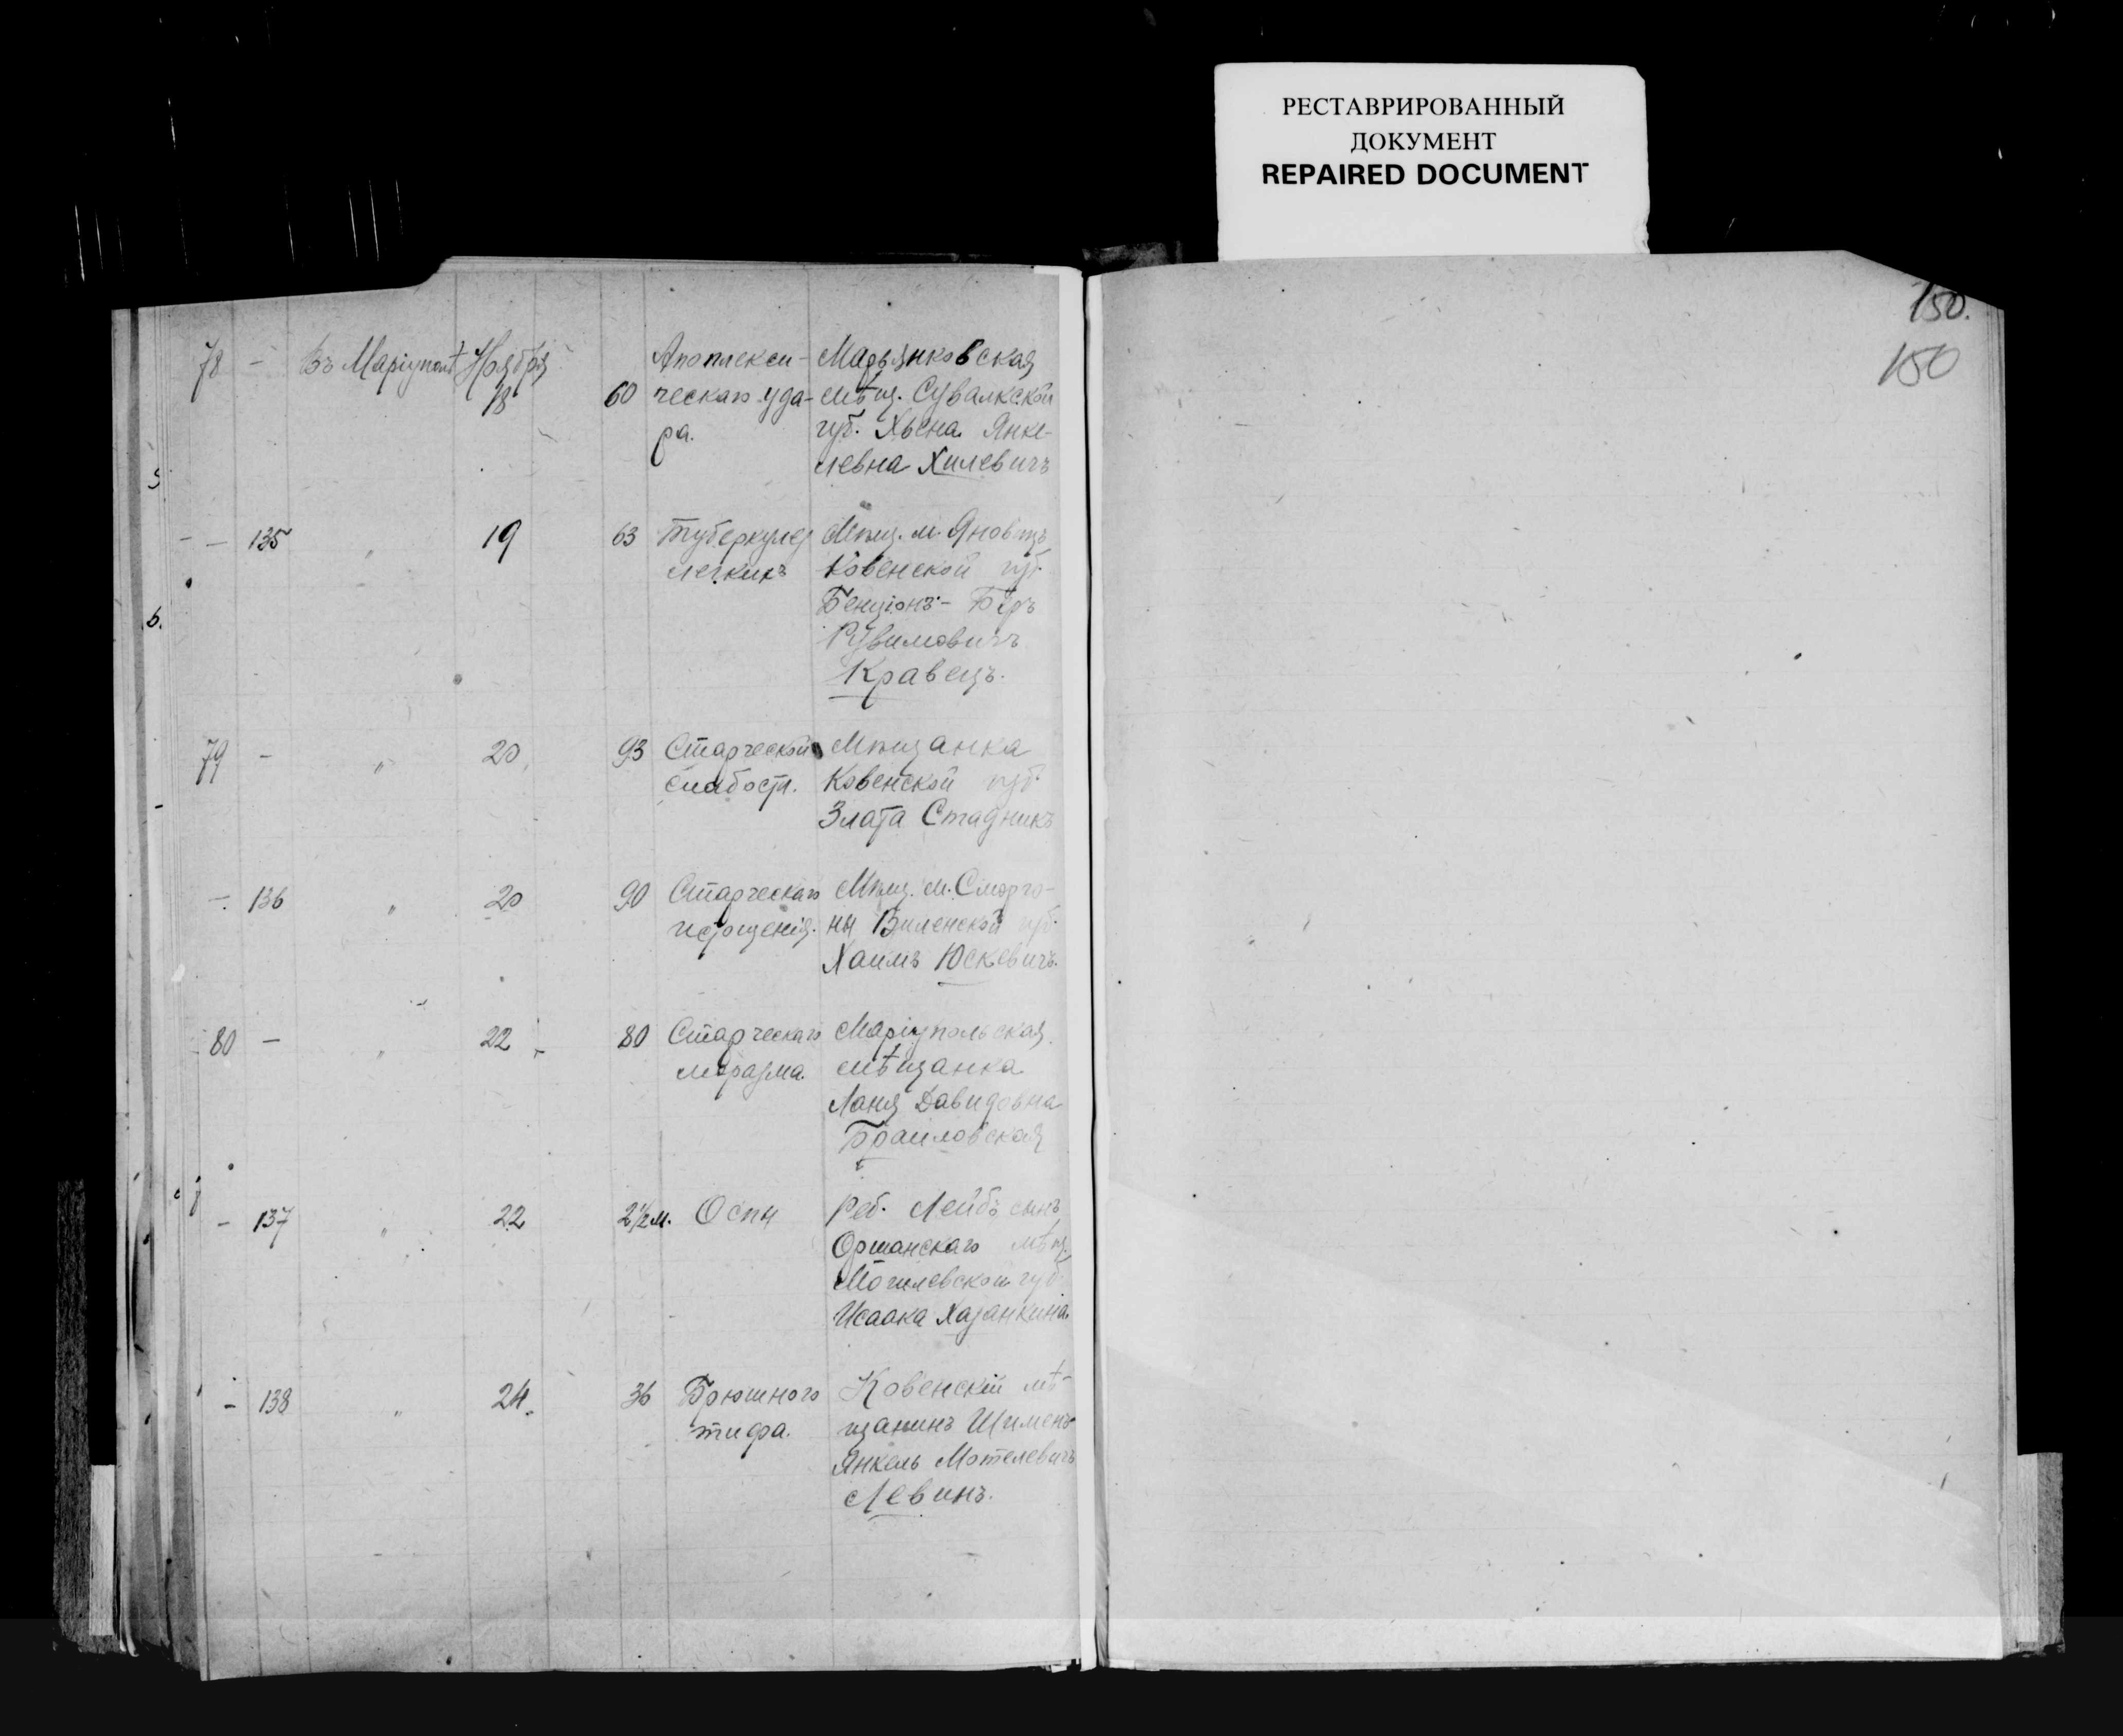 РЕСТАВРИРОВАННЫЙ
ДОКУМЕНТ
REPAIRED DOCUMENT
150.
150
78 - Въ Маріуполѣ Ноября
18 60
Апоплекси-
ческаго уда-
ра.
Марьянковская
мѣщ. Сувалкской
губ. Хьена Янке-
левна Хилевичъ
- 135 " 19 63
Туберкулез
легкихъ
Мѣщ. м. Яновъ
Ковенской губ.
Бенціонъ-Беръ
Рувимовичъ
Кравецъ.
79 - " 20 93
Старческой
слабости.
Мѣщанка
Ковенской губ.
Злата Стадникъ
- 136 " 20 90
Старческаго
истощенія.
Мѣщ. м. Сморго-
ны Виленской губ.
Хаимъ Юскевичъ.
80 - " 22 80
Старческаго
маразма.
Маріупольская
мѣщанка
Ханя Давидовна
Браиловская
- 137 " 22 2½ м.
Оспы
Реб. Лейбъ сынъ
Оршанскаго мѣщ.
Могилевской губ.
Исаака Хазанкина.
- 138 " 24 36
Брюшного
тифа.
Ковенскій мѣ-
щанинъ Шименъ
Янкель Мотелевичъ
Левинъ.